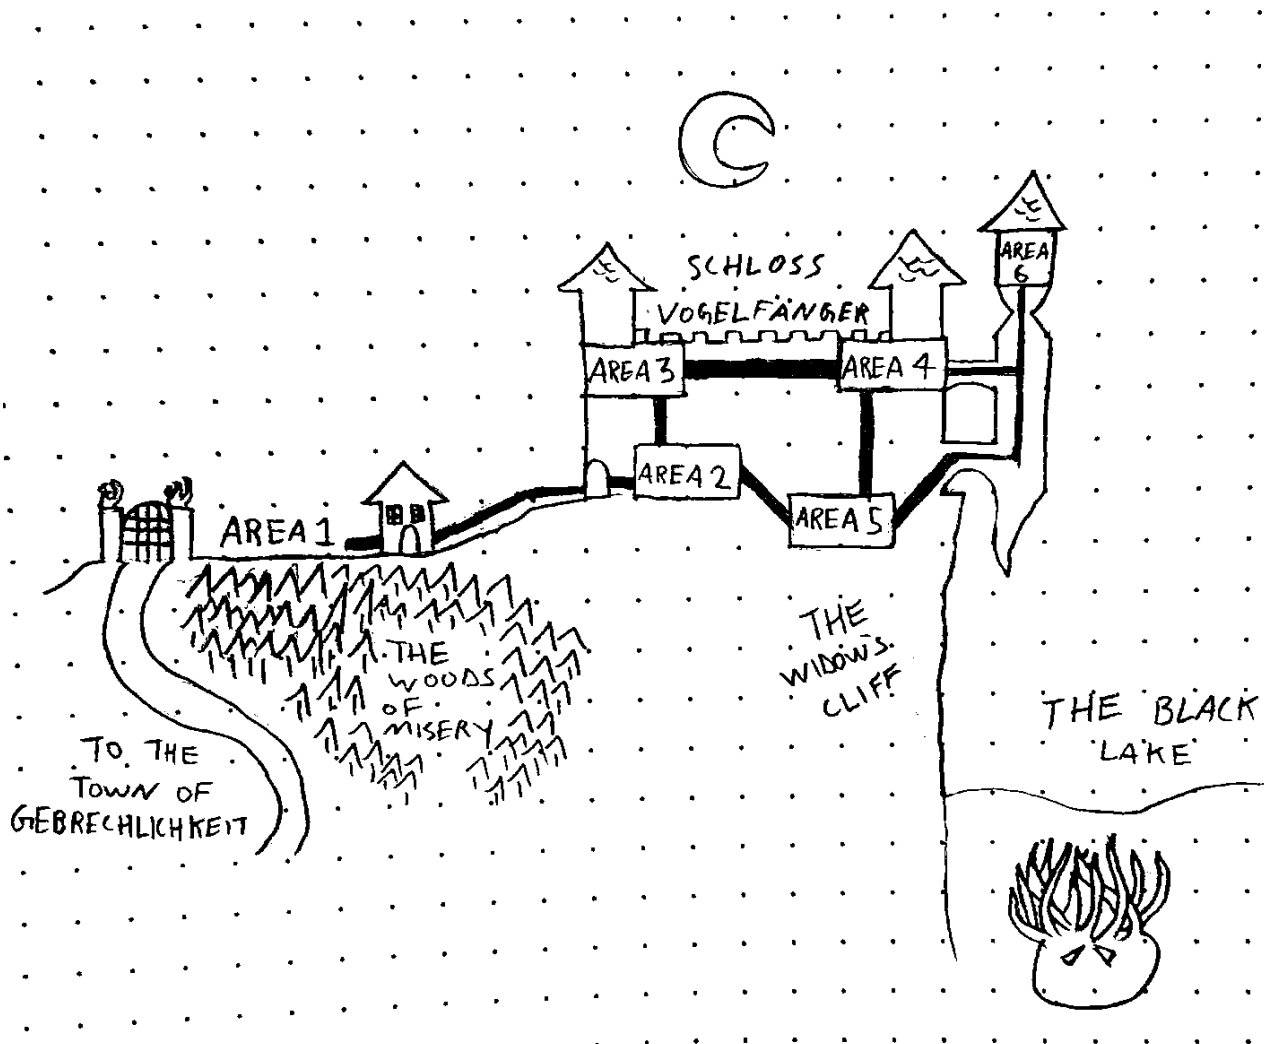 SCHLOSS
VOGELFÄNGER
AREA
6
AREA 3
AREA 4
AREA 2
AREA 5
AREA 1
THE
WOODS
OF
MISERY
THE
WIDOW'S
CLIFF
THE BLACK
LAKE
TO THE
TOWN OF
GEBRECHLICHKEIT